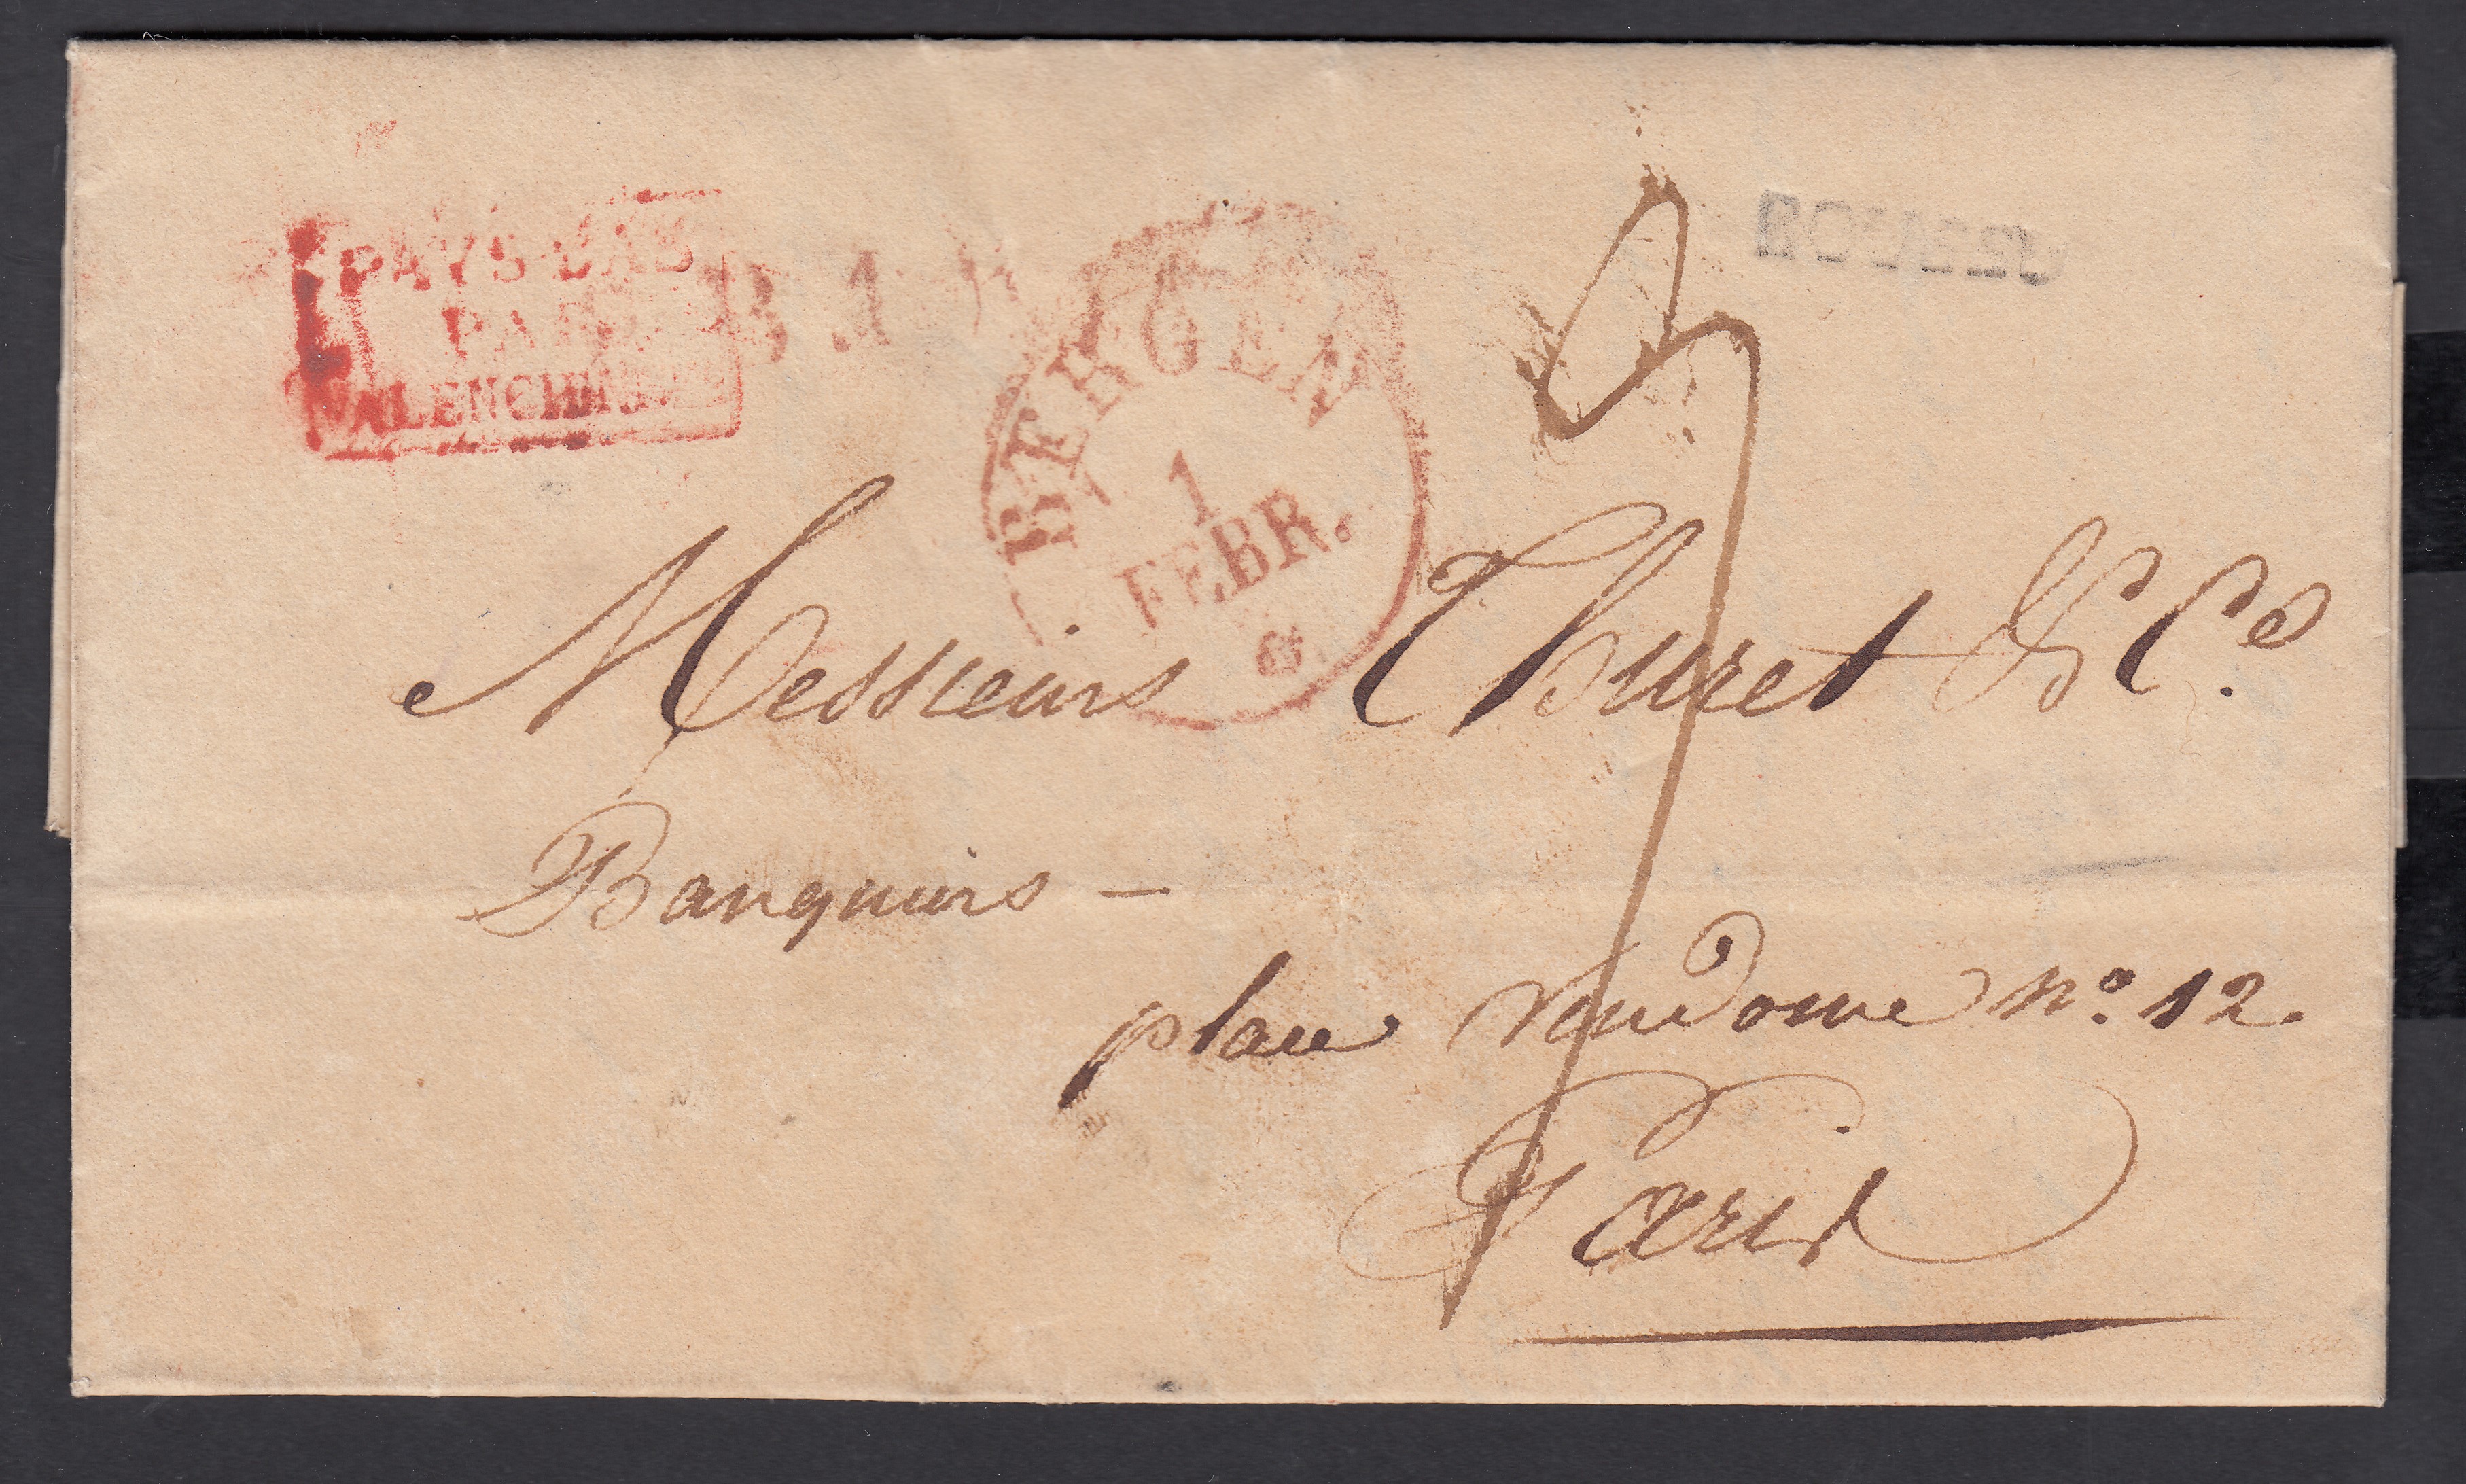 PAYS-BAS
PAR
VALENCIENNES
B. 1
BERGEN
1
FEBR.
Messieurs Thuret & Cᵉ.
Banquiers —
place Vendome nº. 12.
Paris